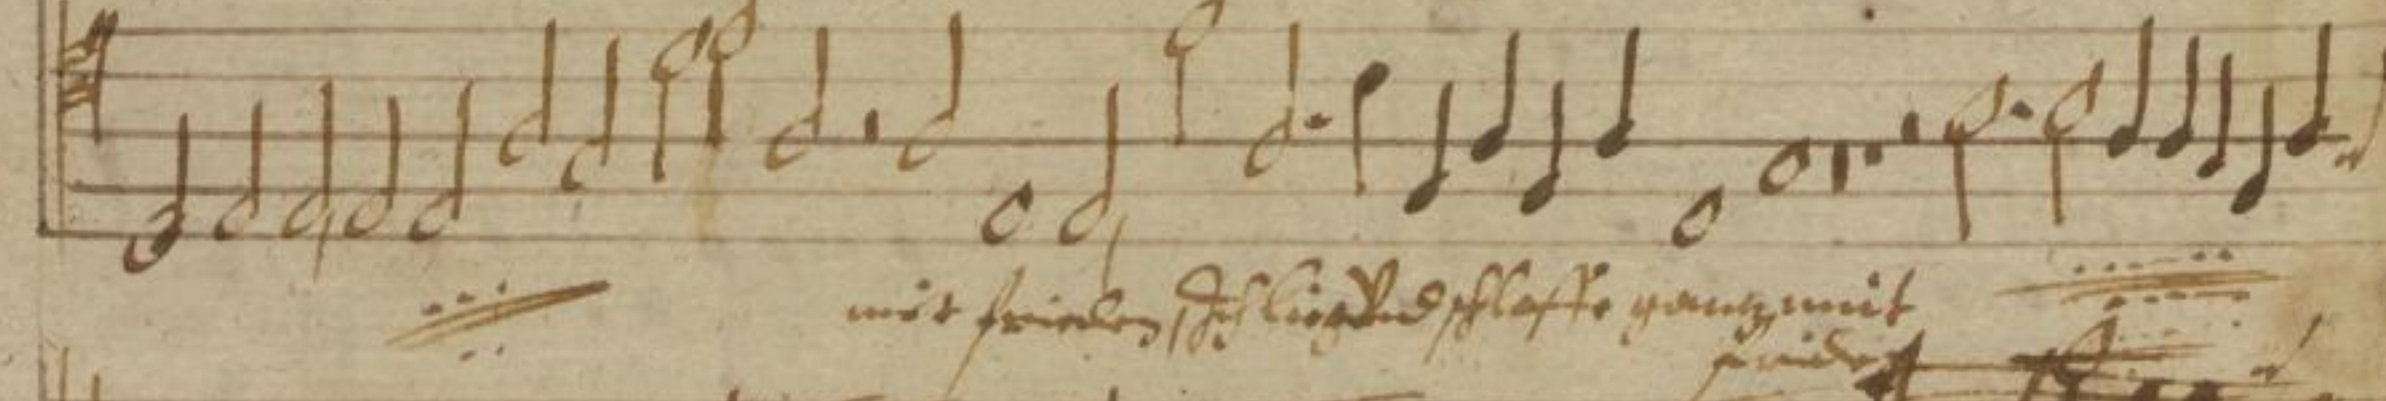 mit frieden, Ich lieg Vnd schlaffe gantz mit
frieden